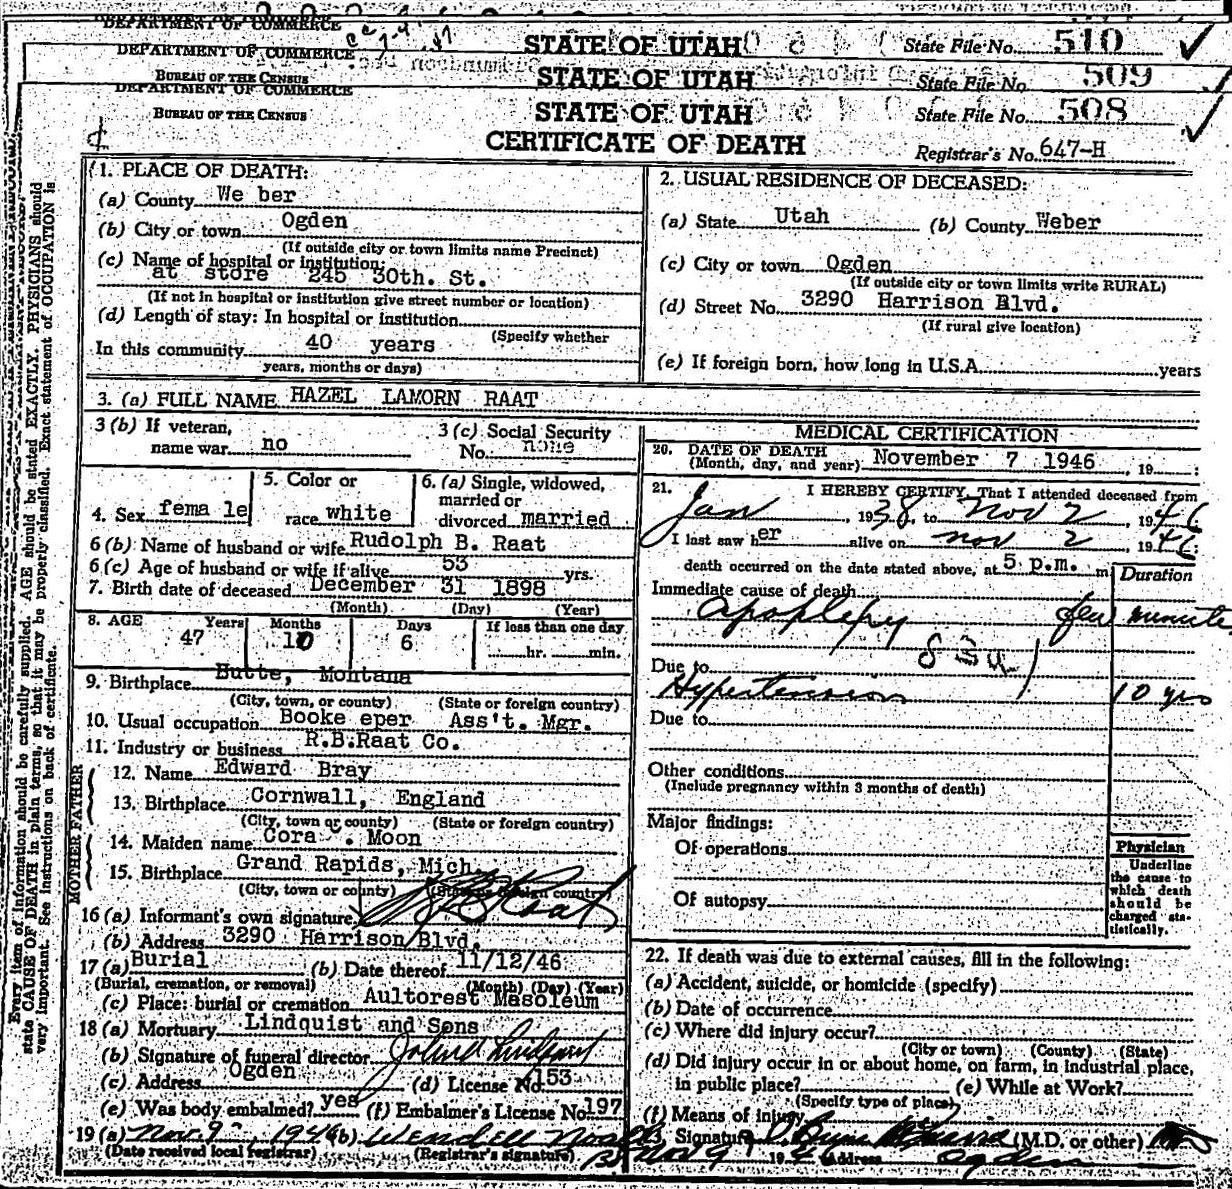 DEPARTMENT OF COMMERCE
DEPARTMENT OF COMMERCE
BUREAU OF THE CENSUS
DEPARTMENT OF COMMERCE
BUREAU OF THE CENSUS
STATE OF UTAH
STATE OF UTAH
STATE OF UTAH
CERTIFICATE OF DEATH
State File No. 510
State File No. 509
State File No. 508
Registrar's No. 647-H
Every item of information should be carefully supplied. AGE should be stated EXACTLY. PHYSICIANS should
state CAUSE OF DEATH in plain terms, so that it may be properly classified. Exact statement of OCCUPATION is
very important. See instructions on back of certificate.
1. PLACE OF DEATH:
(a) County We ber
(b) City or town Ogden
(If outside city or town limits name Precinct)
(c) Name of hospital or institution:
at store 245 30th. St.
(If not in hospital or institution give street number or location)
(d) Length of stay: In hospital or institution
(Specify whether
In this community 40 years
years, months or days)
2. USUAL RESIDENCE OF DECEASED:
(a) State Utah (b) County Weber
(c) City or town Ogden
(If outside city or town limits write RURAL)
(d) Street No. 3290 Harrison Blvd.
(If rural give location)
(e) If foreign born, how long in U.S.A. years
3. (a) FULL NAME HAZEL LAMORN RAAT
3 (b) If veteran, name war no
3 (c) Social Security No. none
4. Sex fema le
5. Color or race white
6. (a) Single, widowed, married or divorced married
6 (b) Name of husband or wife Rudolph B. Raat
6 (c) Age of husband or wife if alive 53 yrs.
7. Birth date of deceased December 31 1898
(Month) (Day) (Year)
8. AGE Years Months Days If less than one day
47 10 6 hr. min.
9. Birthplace Butte, Montana
(City, town, or county) (State or foreign country)
10. Usual occupation Booke eper Ass't. Mgr.
11. Industry or business R.B.Raat Co.
FATHER
12. Name Edward Bray
13. Birthplace Cornwall, England
(City, town or county) (State or foreign country)
MOTHER
14. Maiden name Cora . Moon
15. Birthplace Grand Rapids, Mich.
(City, town or county) (State or foreign country)
16 (a) Informant's own signature R B Raat
(b) Address 3290 Harrison Blvd.
17 (a) Burial (b) Date thereof 11/12/46
(Burial, cremation, or removal) (Month) (Day) (Year)
(c) Place: burial or cremation Aultorest Masoleum
18 (a) Mortuary Lindquist and Sons
(b) Signature of funeral director John A Lindquist
(c) Address Ogden (d) License No. 153
(e) Was body embalmed? yes (f) Embalmer's License No. 197
19 (a) Nov. 9, 1946 (b) Wendell
(Date received local registrar) (Registrar's signature)
MEDICAL CERTIFICATION
20. DATE OF DEATH
(Month, day, and year) November 7 1946, 19 :
21. I HEREBY CERTIFY, That I attended deceased from
Jan, 1938, to Nov 2, 1946
I last saw her alive on Nov 2 1946:
death occurred on the date stated above, at 5 p.m. m
Duration
Immediate cause of death
apoplexy few minute
83a
Due to
Hypertension 10 yrs
Due to
Other conditions
(Include pregnancy within 3 months of death)
Major findings:
Of operations
Of autopsy
Physician
Underline
the cause to
which death
should be
charged sta-
tistically.
22. If death was due to external causes, fill in the following:
(a) Accident, suicide, or homicide (specify)
(b) Date of occurrence
(c) Where did injury occur?
(City or town) (County) (State)
(d) Did injury occur in or about home, on farm, in industrial place,
in public place? (e) While at Work?
(Specify type of place)
(f) Means of injury
23. Signature (M.D. or other)
Nov 9 1946 Address Ogden